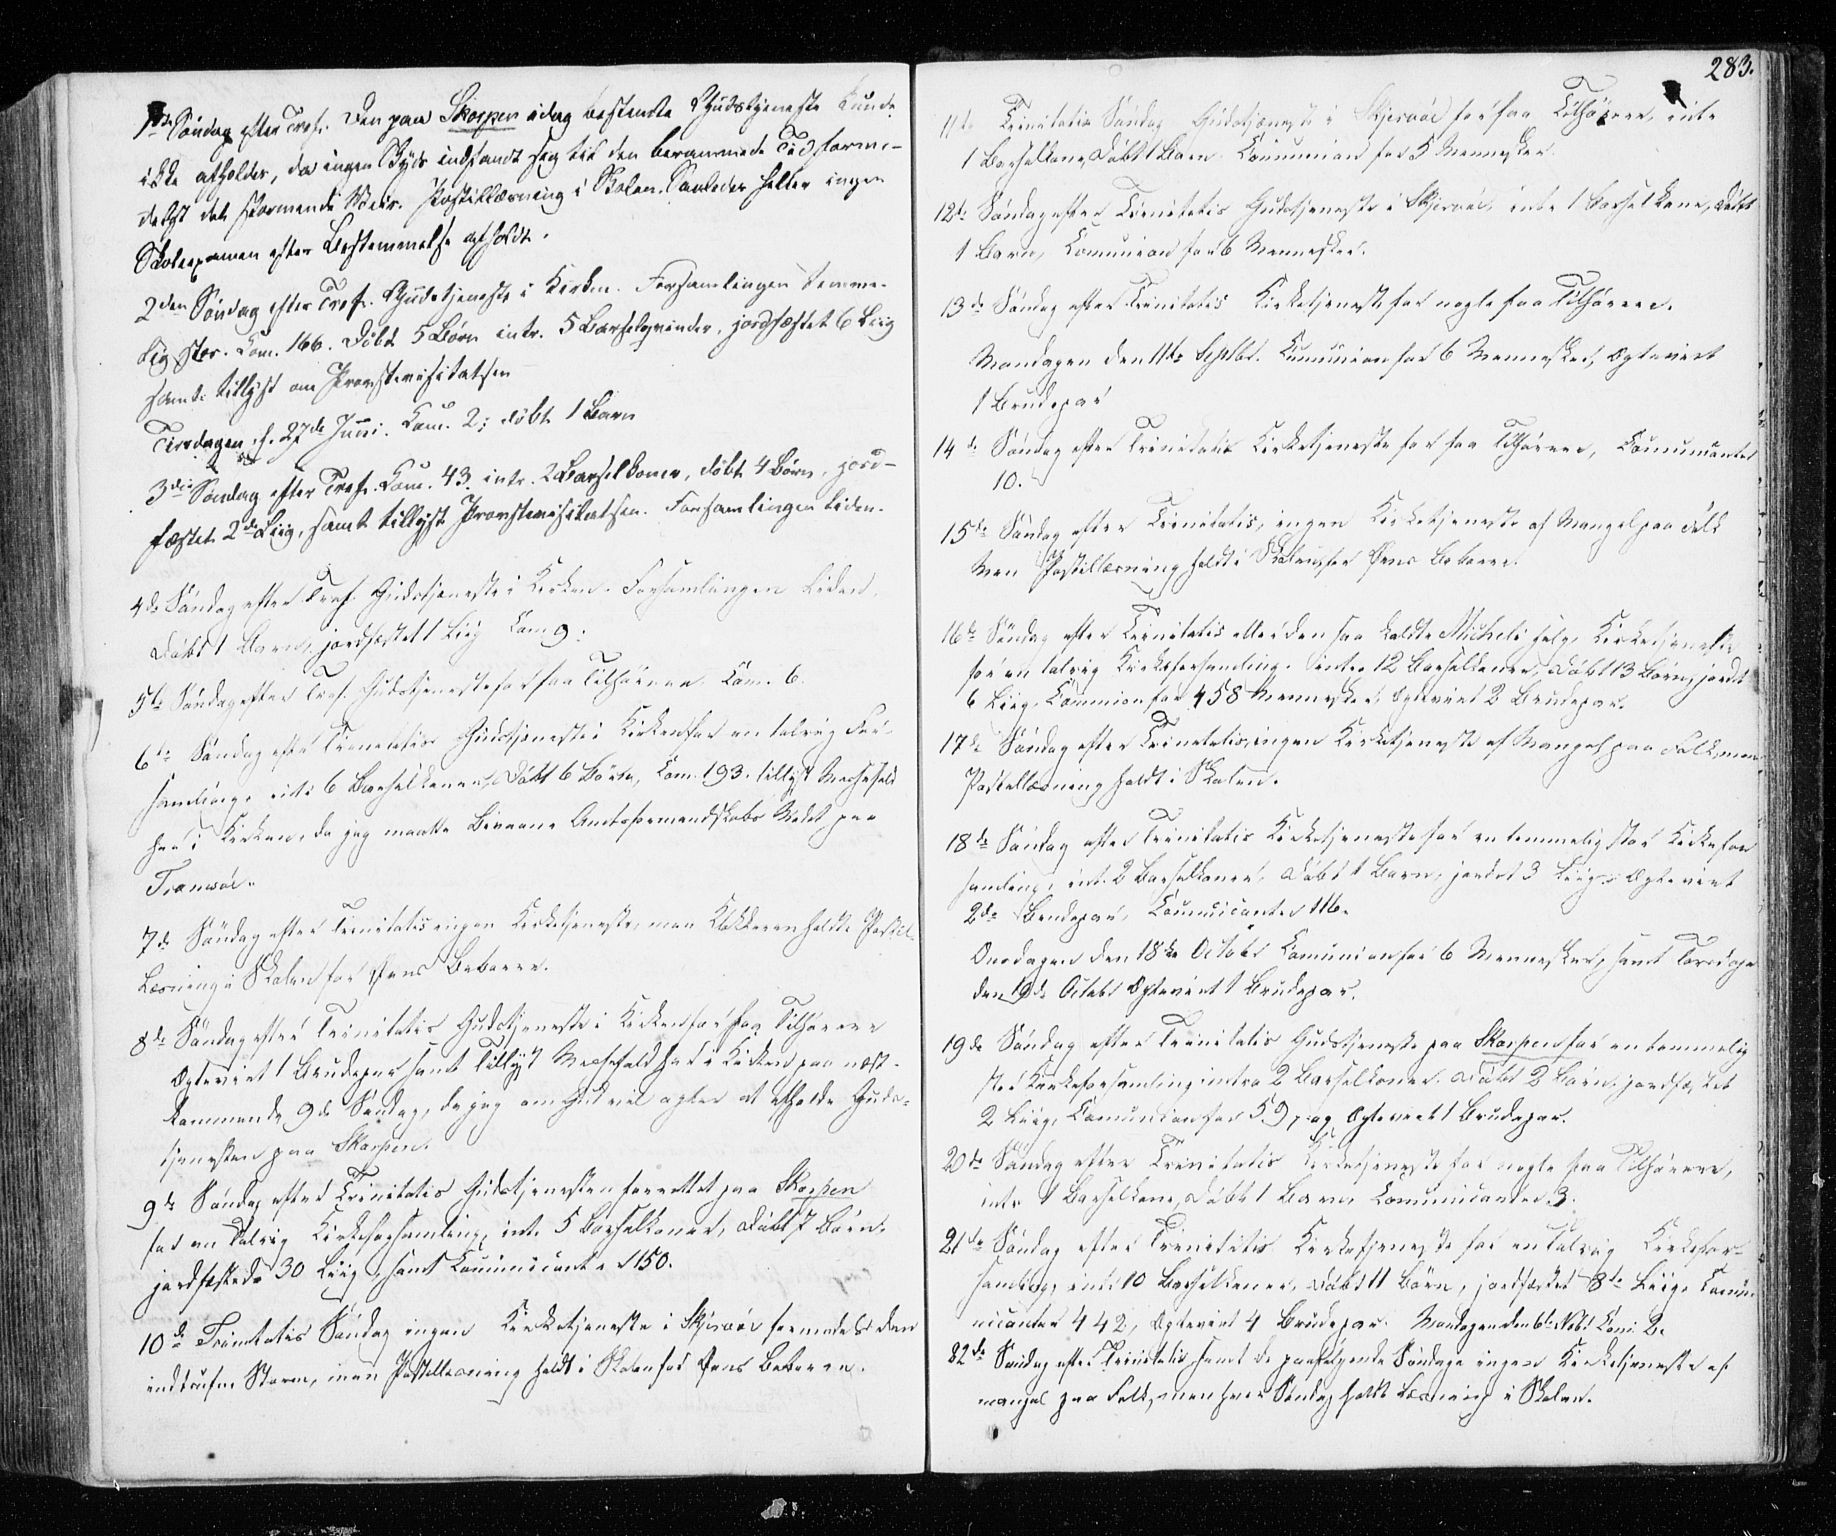 1ste Søndag efter Tref. Den paa Skorpen idag bestemte Gudstjeneste kunde
ikke atholdes, da ingen Skyds indfandt sig til den berammede Tid forme-
delst det stormende Veir. Postillæsning i Skolen. Saaledes heller ingen
Skoleexamen efter Bestemmelse afholdt.
2den Søndag efter Tref. Gudstjeneste i Kirken. Forsamlingen temme-
lig stor. Com. 166. Døbt 5 Børn intr. 5 Barselqvinder, jordfæstet 6 Liig
samt tillyst om Provstevisitatsen
Tirsdagen d. 27de Juni. Com. 2; døbt 1 Barn
3die Søndag efter Tref. Com. 43. intr. 2 Barselkoner, døbt 4 Børn, jord-
fæstet 2de Liig, samt tillyst Provstevisitatsen. Forsamlingen liden.
4de Søndag efter Tref. Gudstjeneste i Kirken. Forsamlingen liden.
Døbt 1 Barn, jordfæstet 1 Liig Com 9.
5te Søndag efter Tref. Gudstjeneste for faa Tilhørere. Com. 6.
6te Søndag efter Trinitatis Gudstjeneste i Kirken for en talrig For-
samling, intr 6 Barselkoner, Døbt 6 Børn, Com. 193. tillyst Messefald
her i Kirken, da jeg maatte bivaane Amtsformandskabs Mødet paa
Tromsøe.
7de Søndag efter Trinitatis ingen Kirketjeneste, men Klokkeren holdt Postil-
læsning i Skolen for Øens Beboere.
8de Søndag efter Trinitatis Gudstjeneste i Kirken for faa Tilhørere
Ægteviet 1 Brudepar samt Tillyst Messefald her i Kirken paa næst-
kommende 9de Søndag, da jeg om Gud vil agter at atholde Guds-
tjenesten paa Skorpen.
9de Søndag efter Trinitatis Gudstjenesten forrettet paa Skorpen
for en talrig Kirkeforsamling, intr. 5 Barselkoner, Døbt 7 Børn,
jordfæstede 30 Liig, samt Communicanter 150.
10de Trinitatis Søndag ingen Kirketjeneste i Skjervøe formedelst den
indtrufne Storm, men Postillæsning holdt i Skolen for Øens Beboere.
283.
11te Trinitatis Søndag Gudstjeneste i Skjervøe for faa Tilhørere, intr
1 Barselkone, Døbt 1 Barn. Communion for 5 Mennesker.
12te Søndag efter Trinitatis Gudstjeneste i Skjervøe, intr 1 Barselkone, Døbt
1 Barn, Comunion for 6 Mennesker.
13de Søndag efter Trinitatis Kirketjeneste for nogle faa Tilhørere.
Mandagen den 11te Septbr. Comunion for 6 Mennesker, Ægteviet
1 Brudepar
14de Søndag efter Trinitatis Kirketjeneste for faa Tilhørere, Communicanter
10.
15de Søndag efter Trinitatis, ingen Kirketjeneste af Mangel paa Folk
Men Postillæsning holdt i Skolen for Øens Beboere.
16de Søndag efter Trinitatis eller den saa kaldte Micheli helg, Kirketjeneste
for en talrig Kirkeforsamling. Intro 12 Barselkoner, Døbt 13 Børn, jordet
6 Liig, Commion for 458 Mennesker, Ægteviet 2 Brudepar.
17de Søndag efter Trinitatis, ingen Kirketjeneste af Mangel paa Folk, men
Postillæsning holdt i Skolen.
18de Søndag efter Trinitatis Kirketjeneste for en temmelig stor Kirkefor
samling, int. 2 Barselkoner, Døbt 1 Barn, jordet 3 Liig, Ægteviet
2de Brudepar, Communicanter 116.
Onsdagen den 18de Octobr Comunion for 6 Mennesker, samt Torsdagen
den 19de Octobr Ægteviet 1 Brudepar.
19de Søndag efter Trinitatis Gudstjeneste paa Skorpen for en temmelig
stor Kirkeforsamling intro 2 Barselkoner. Døbt 2 Børn. jordfæstet
2 Liig, Comunion for 59, og Ægteviet 1 Brudepar.
20de Søndag efter Trinitatis Kirketjeneste for nogle faa Tilhørere,
intr 1 Barselkone, Døbt 1 Barn Comunicanter 3.
21de Søndag efter Trinitatis Kirketjeneste for en talrig Kirkefor-
samling, intr 10 Barselkoner, Døbt 11 Børn, jordfæstet 8te Liig, Comu-
nicanter 442, Ægteviet 4 Brudepar. Mandagen den 6te Nobr Comi 2.
82de Søndag efter Trinitatis samt de paafølgende Søndage ingen Kirketjeneste af
mangel paa Folk, men hver Søndag holdt Læsning i Skolen.